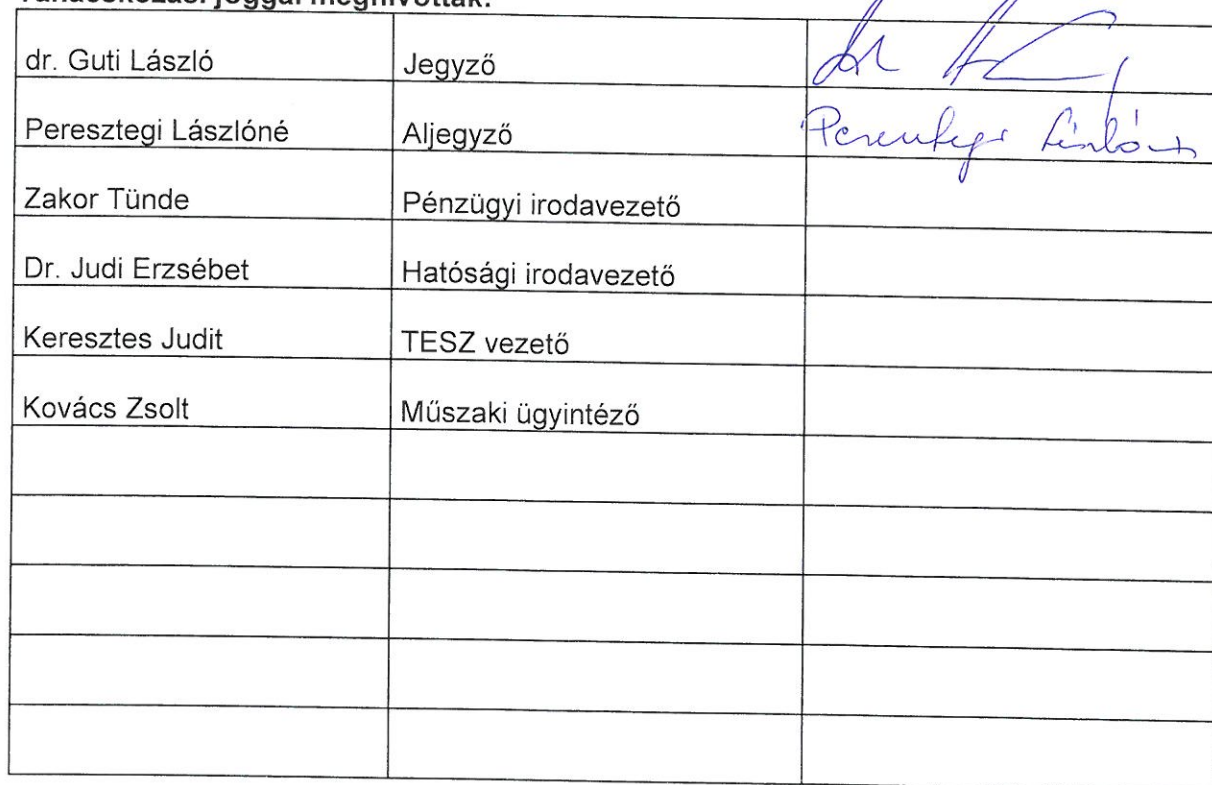 Tanácskozási joggal meghívottak:
dr. Guti László Jegyző
Peresztegi Lászlóné Aljegyző Peresztegi Lászlóné
Zakor Tünde Pénzügyi irodavezető
Dr. Judi Erzsébet Hatósági irodavezető
Keresztes Judit TESZ vezető
Kovács Zsolt Műszaki ügyintéző